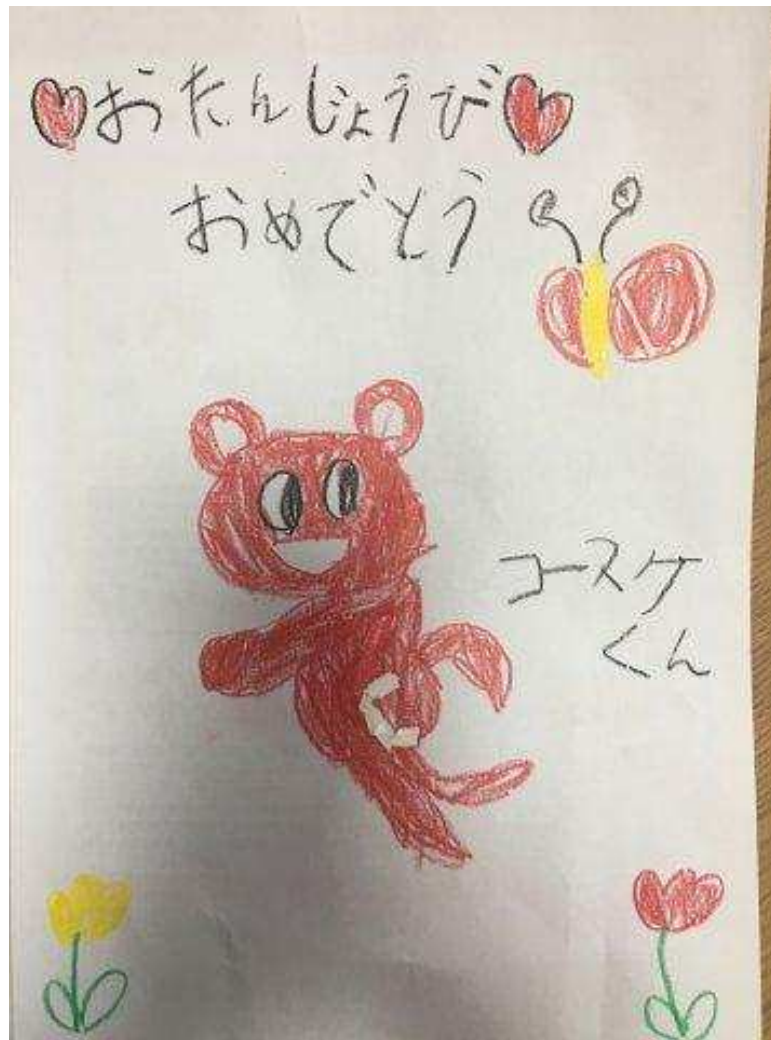 おたんじょうび
おめでとう
コースケ
くん